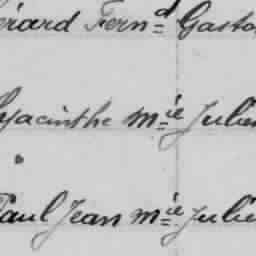 érard Fern^d Gasto
Hyacinthe M^ie Julien
Paul Jean M^ie Julie